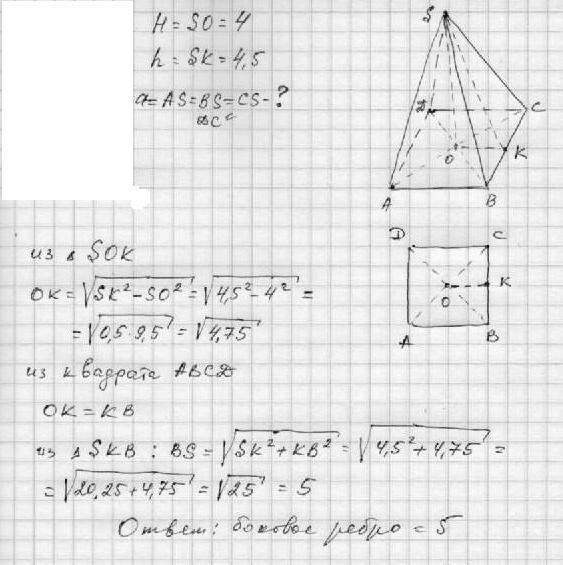 H = SO = 4
h = SK = 4,5
a = AS = BS = CS - ?
DC
S
D
C
O
K
A
B
из △ SOK
OK = √(SK² - SO²) = √(4,5² - 4²) =
= √(0,5 · 9,5) = √4,75
D
C
K
O
A
B
из квадрата ABCD
OK = KB
из △ SKB : BS = √(SK² + KB²) = √(4,5² + 4,75) =
= √(20,25 + 4,75) = √25 = 5
Ответ: боковое ребро = 5